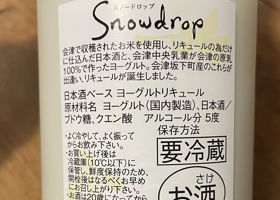 スノードロップ
Snowdrop
会津で収穫されたお米を使用し、リキュールの為だけ
に仕込んだ日本酒と、会津中央乳業が会津の原乳
100%で作ったヨーグルト。会津坂下町産のこれらが
出逢い、リキュールが誕生しました。
日本酒ベース ヨーグルトリキュール
原材料名 ヨーグルト(国内製造)、日本酒/
ブドウ糖、クエン酸 アルコール分 5度
・よく冷やして、よく振って
からお飲み下さい。
・お買い上げ後は
冷蔵庫(10℃以下)に
保管し、鮮度保持のため、
開栓後はなるべくお早め
にお召し上がり下さい。
・お酒は20歳になってから
保存方法
要冷蔵
さけ
お酒